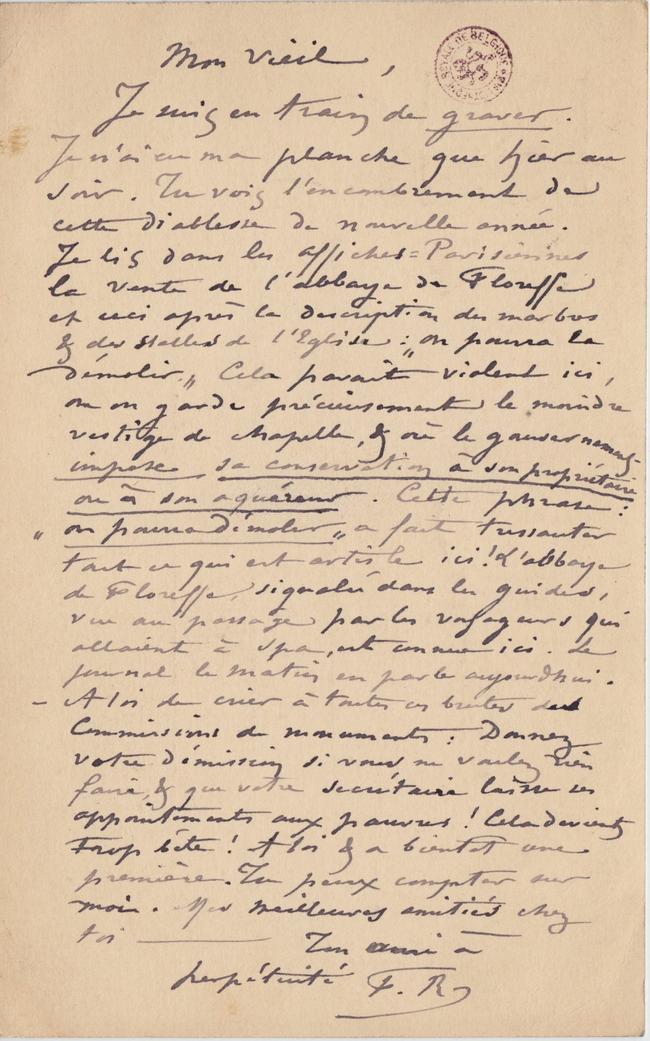 Mon Vieil,
Je suis en train de graver.
Je n'ai eu ma planche que hier au
soir. Tu vois l'encombrement de
cette diablesse de nouvelle année.
Je lis dans les affiches=Parisiennes
la vente de l'abbaye de Floreffe
et ceci après la description des marbres
& des stalles de l'Eglise : „on pourra la
démolir.„ Cela parait violent ici,
ou on garde précieusement le moindre
vestige de chapelle, & où le gouvernement
impose sa conservation à son propriétaire
ou à son aquéreur. Cette phrase :
„on pourra démolir„ a fait tressauter
tout ce qui est artiste ici! L'abbaye
de Floreffe, signalée dans les guides,
vue au passage par les voyageurs qui
allaient à Spa, est connue ici. Le
journal le Matin en parle aujourdhui.
– A toi de crier à toutes ces brutes des
Commissions de monuments : Donnez
votre démission si vous ne voulez rien
faire, & que votre secrétaire laisse ses
appointements aux pauvres! Cela devient
trop bête! A toi & a bientot une
première. Tu peux compter sur
moi. Mes meilleures amitiés chez
toi ——— Ton ami à
perpétuité F. R
BELGIQUE